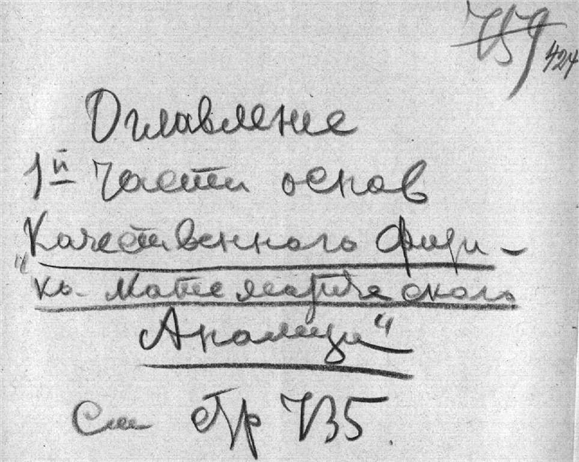 759
424
Оглавление
1й части основ
"Качественного физи-
ко-математического
Анализа"
См стр 735.